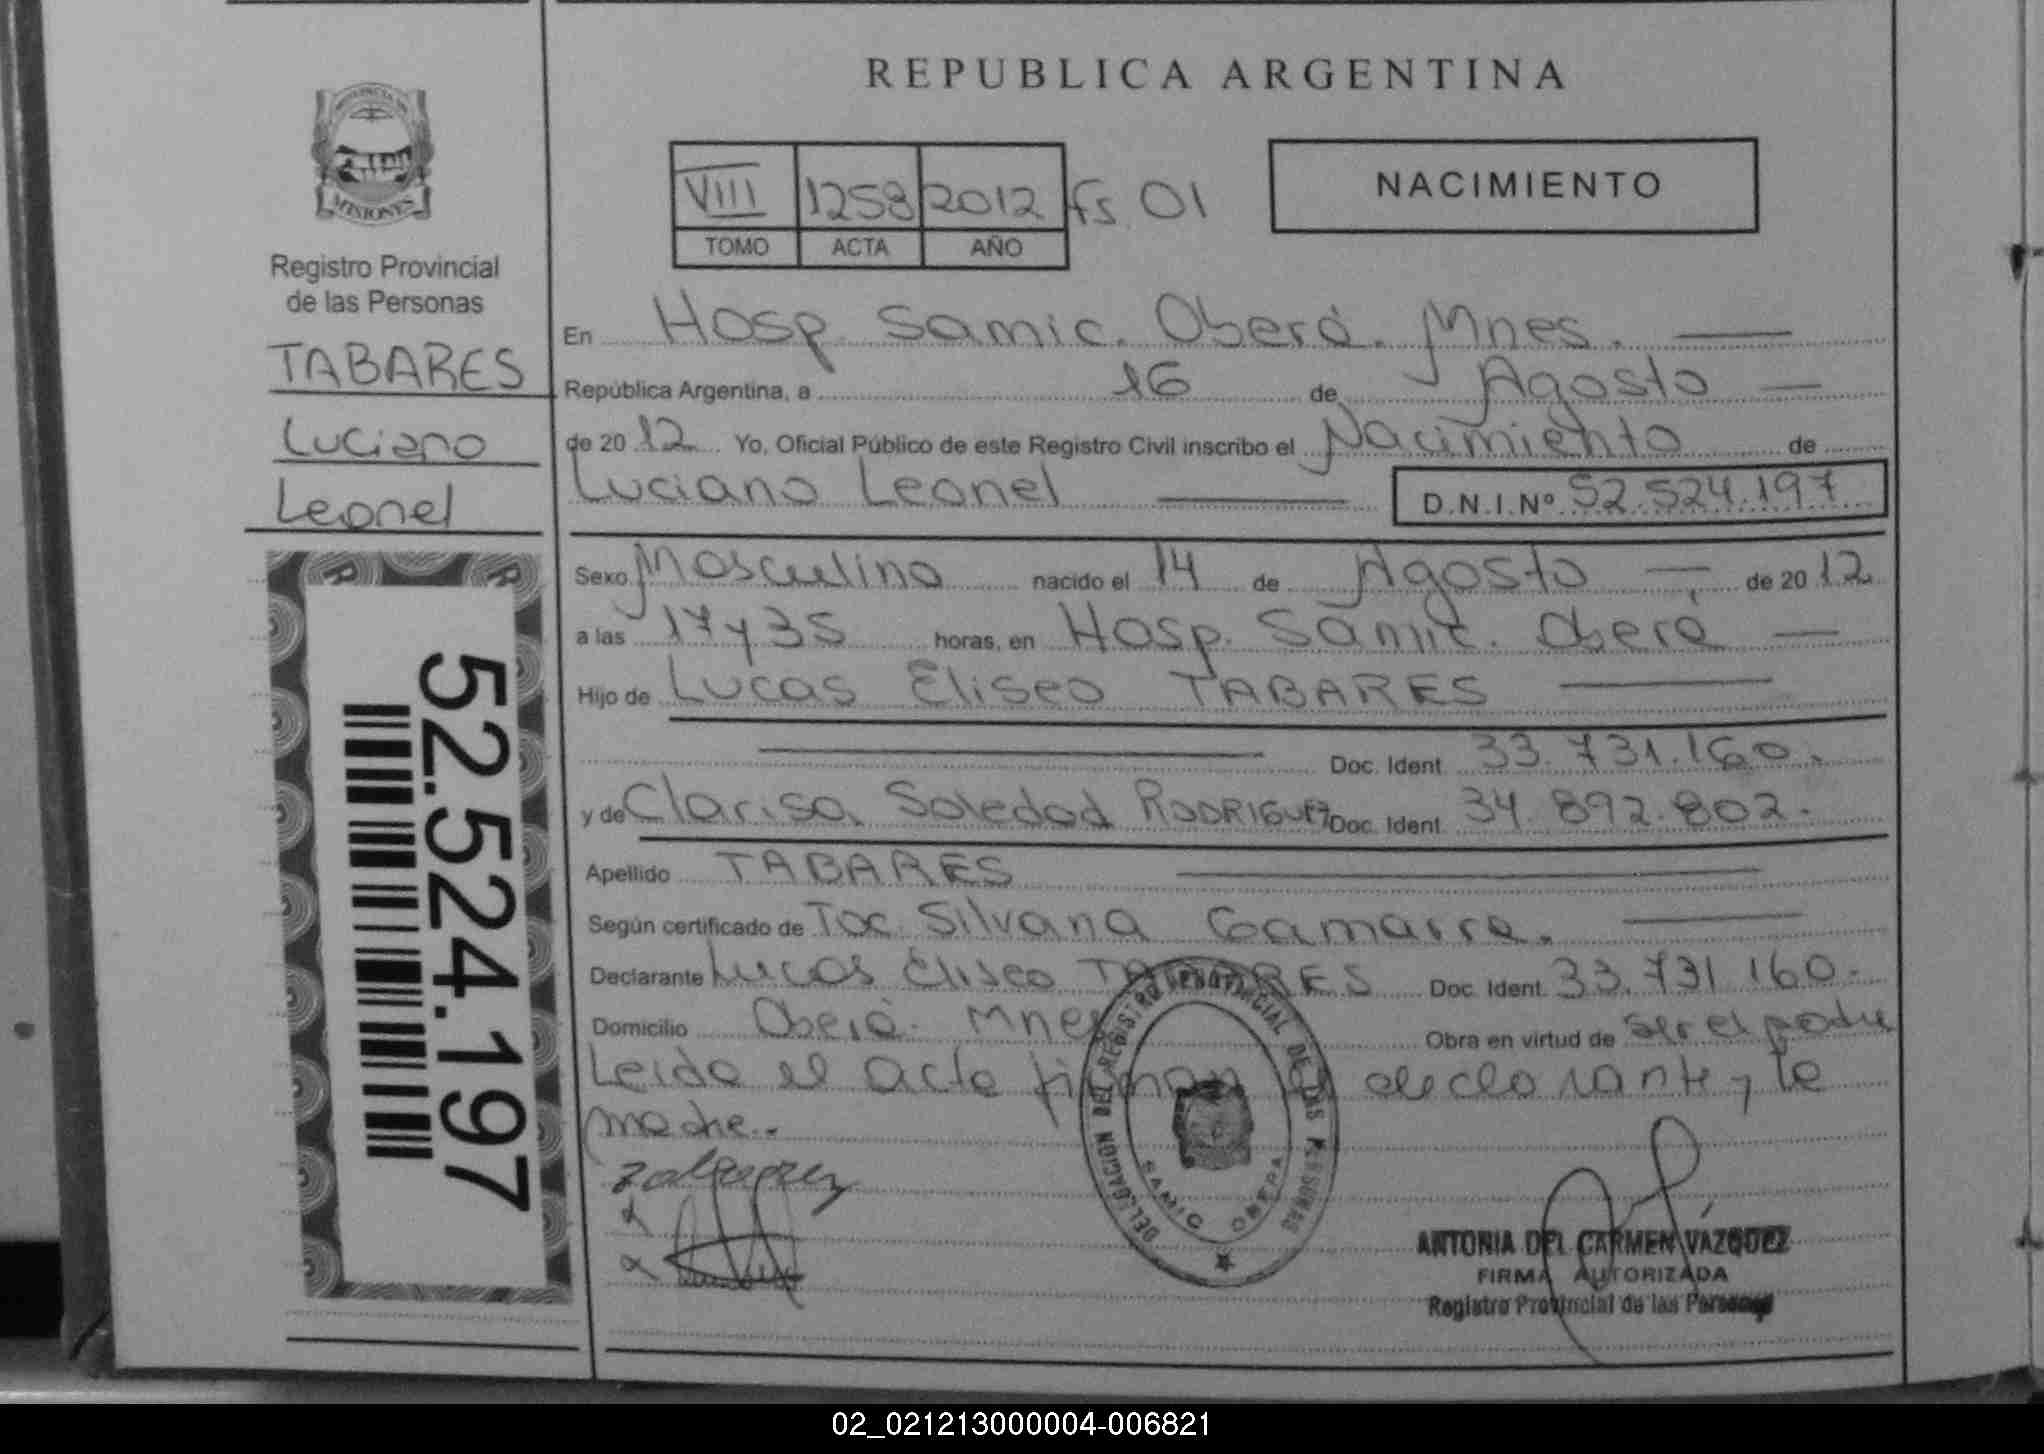 REPUBLICA ARGENTINA
PROVINCIA DE
MISIONES
Registro Provincial
de las Personas
TABARES
Luciano
Leonel
52.524.197
VIII 1258 2012 fs. 01
TOMO ACTA AÑO
NACIMIENTO
En Hosp. Samic. Oberá. Mnes.
República Argentina, a 16 de Agosto
de 2012 Yo, Oficial Público de este Registro Civil inscribo el Nacimiento de
Luciano Leonel D.N.I.Nº 52.524.197
Sexo Masculino nacido el 14 de Agosto de 2012
a las 17 y 35 horas, en Hosp. Samic. Oberá
Hijo de Lucas Eliseo TABARES
Doc. Ident. 33.731.160.
y de Clarisa Soledad RODRIGUEZ Doc. Ident. 34.892.802.
Apellido TABARES
Según certificado de Toc. Silvana Gamarra.
Declarante Lucas Eliseo TABARES Doc. Ident. 33.731.160.
Domicilio Oberá. Mnes Obra en virtud de ser el padre
Leida el acta firman el declarante y la
madre.
DELEGACION DEL REGISTRO PROVINCIAL DE LAS PERSONAS
SAMIC OBERA
ANTONIA DEL CARMEN VAZQUEZ
FIRMA AUTORIZADA
Registro Provincial de las Personas
02_021213000004-006821